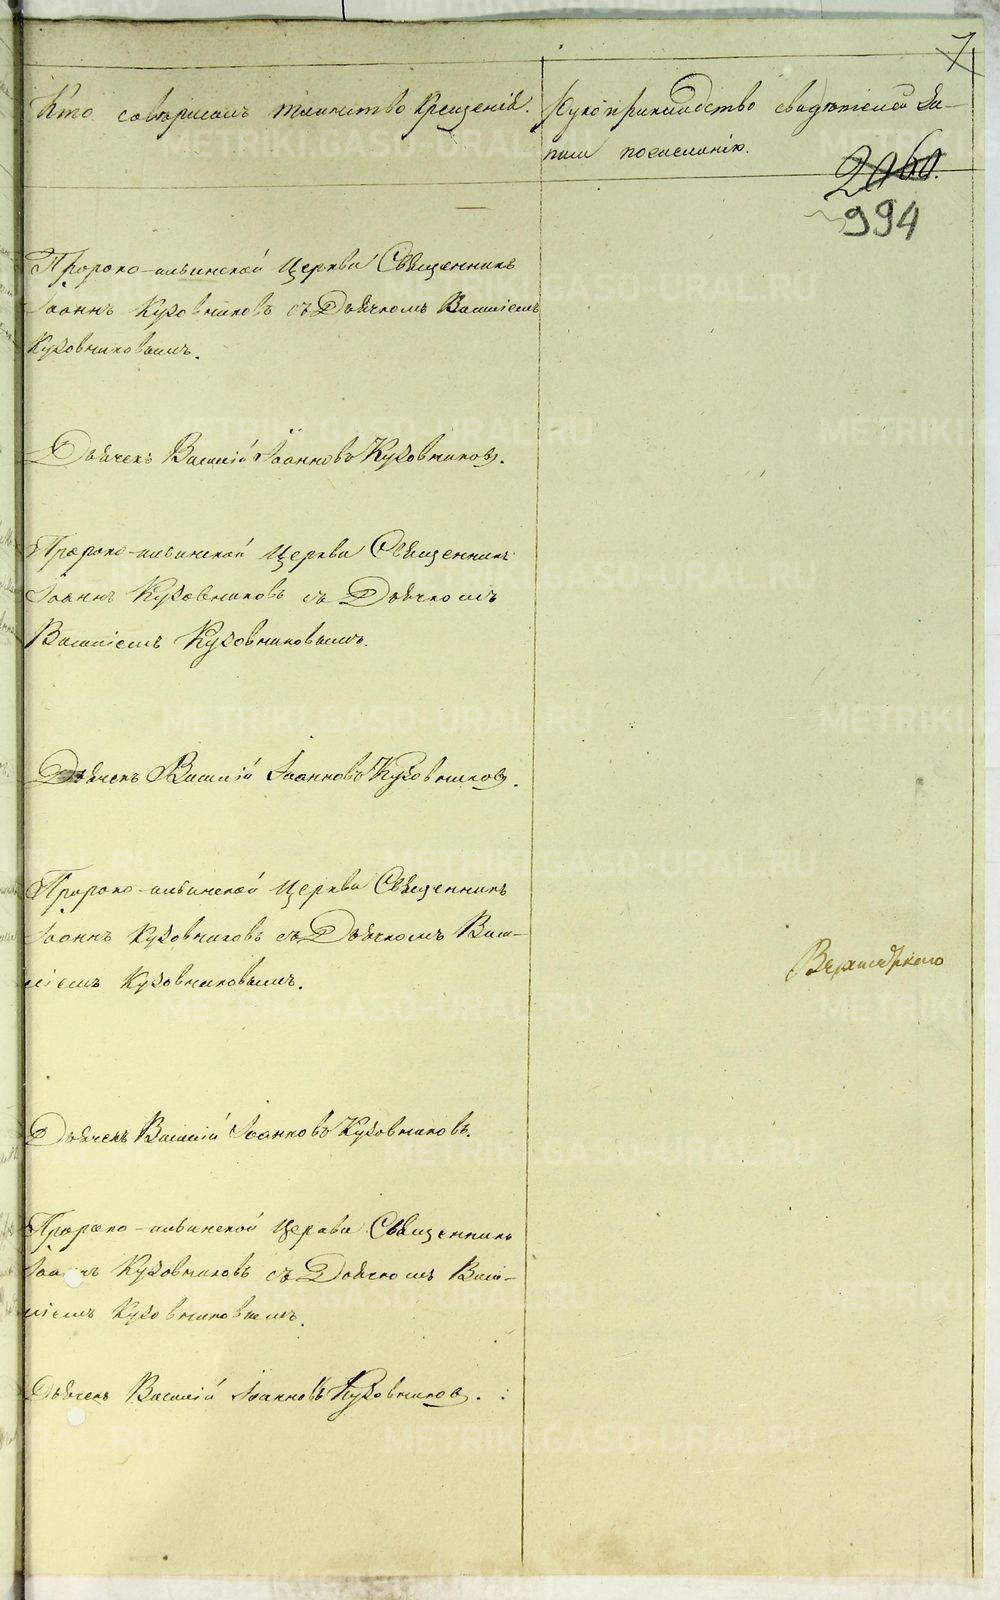 7
Кто совершалъ таинство крещенія.
Рукоприкладство свидѣтелей за-
писи по желанію.
2060.
994
Пророко-ильинской Церкви Священникъ
Іоаннъ Кузовниковъ съ Дьячкомъ Василіемъ
Кузовниковымъ.
Дьячекъ Василій Іоанновъ Кузовниковъ.
Пророко-ильинской Церкви Священникъ
Іоаннъ Кузовниковъ съ Дьячкомъ
Василіемъ Кузовниковымъ.
Дьячекъ Василій Іоанновъ Кузовниковъ.
Пророко-ильинской Церкви Священникъ
Іоаннъ Кузовниковъ съ Дьячкомъ Васи-
ліемъ Кузовниковымъ.
Дьячекъ Василій Іоанновъ Кузовниковъ.
Пророко-ильинской Церкви Священникъ
Іоаннъ Кузовниковъ съ Дьячкомъ Васи-
ліемъ Кузовниковымъ.
Дьячекъ Василій Іоанновъ Кузовниковъ.
METRIKI.GASO-URAL.RU